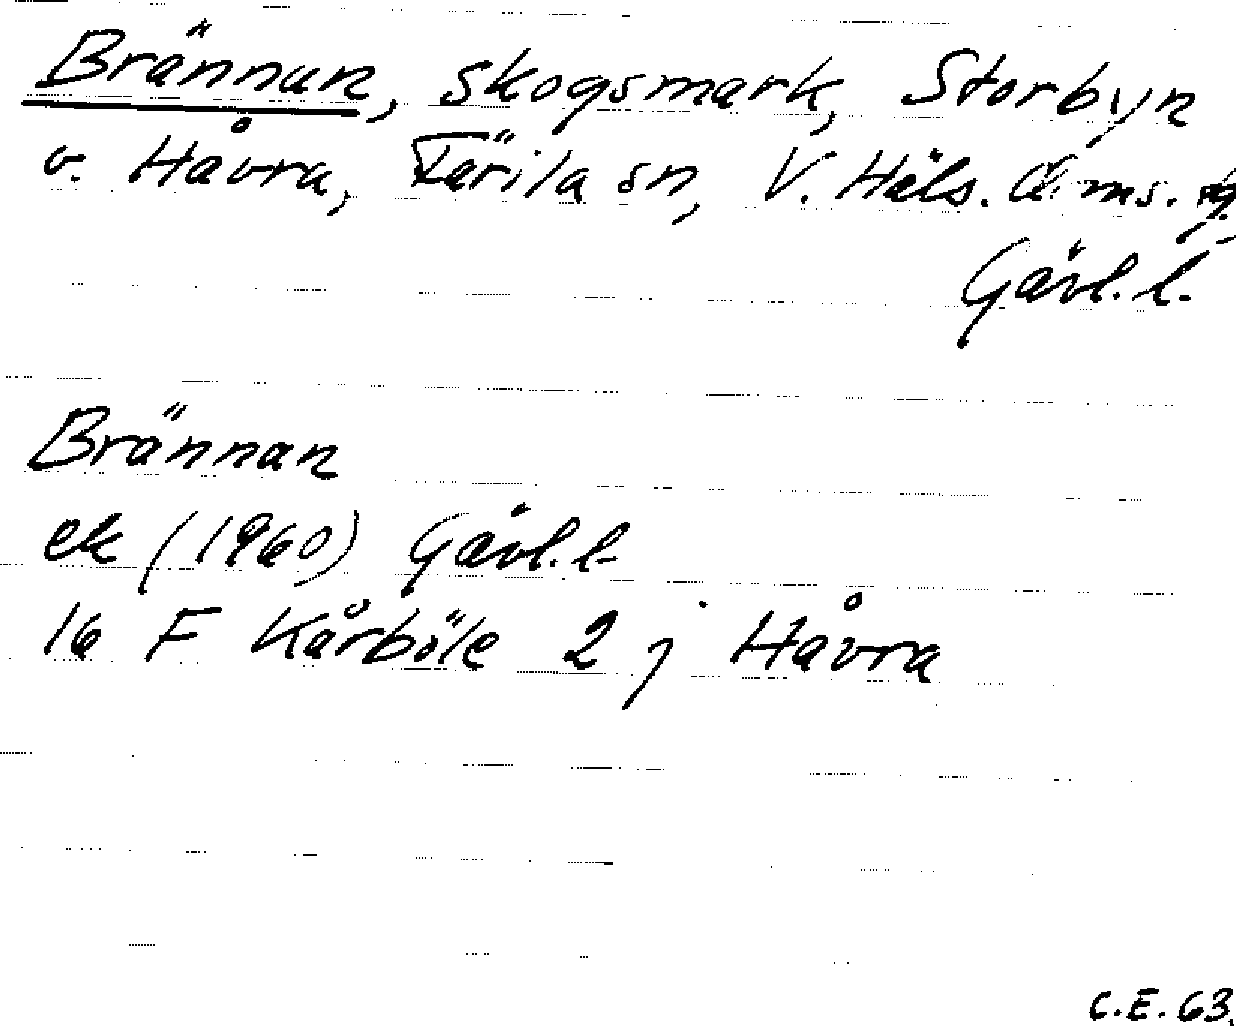 Brännan, skogsmark, Storbyn
v. Håvra, Färila sn, V. Häls. d:ms.
Gävl. l.
Brännan
ek (1960) Gävl. l.
16 F Kårböle 2 j Håvra
C.E. 63.